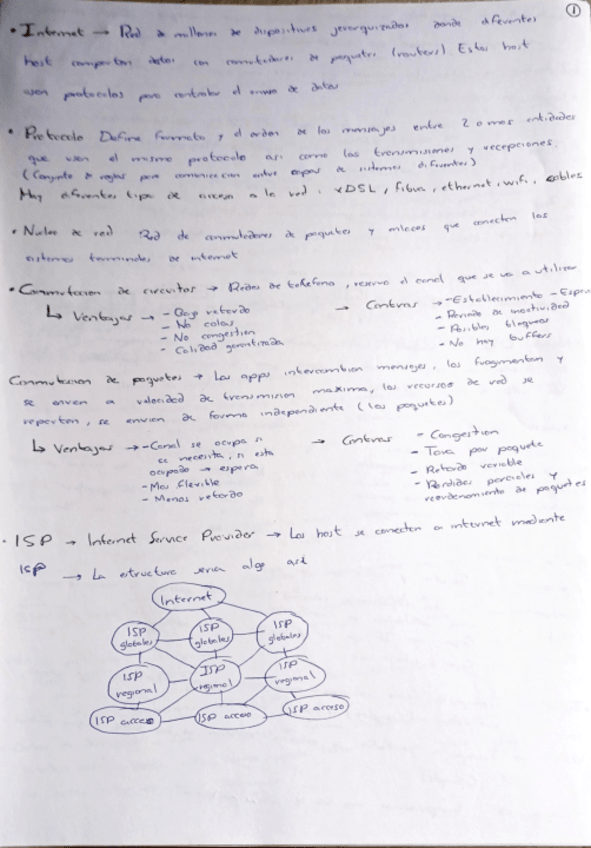 1
• Internet → Red de millones de dispositivos jerarquizados donde diferentes
host comparten datos con conmutadores de paquetes (routers) Estos host
usan protocolos para controlar el envio de datos
• Protocolo Define formato y el orden de los mensajes entre 2 o mas entidades
que usen el mismo protocolo asi como las transmisiones y recepciones.
(Conjunto de reglas para comunicacion entre capas de sistemas diferentes)
Hay diferentes tipos de acceso a la red: xDSL, fibra, ethernet, wifi, cables
• Nucleo de red Red de conmutadores de paquetes y enlaces que conectan los
sistemas terminales de internet
• Conmutacion de circuitos → Redes de telefono, reserva el canal que se va a utilizar
↳ Ventajas → - Bajo retardo
- No colas
- No congestion
- Calidad garantizada
→ Contras → - Establecimiento - Espera
- Periodo de inactividad
- Posibles bloqueos
- No hay buffers
Conmutacion de paquetes → Las apps intercambian mensajes, los fragmentan y
se envian a velocidad de transmision maxima, los recursos de red se
reparten, se envian de forma independiente (los paquetes)
↳ Ventajas → - Canal se ocupa si
se necesita, si esta
ocupado → espera
- Mas flexible
- Menos retardo
→ Contras - Congestion
- Tara por paquete
- Retardo variable
- Perdidas parciales y
reordenamiento de paquetes
• ISP → Internet Service Provider → Los host se conectan a internet mediente
ISP → La estructura seria algo asi
Internet
ISP globales ISP globales ISP globales
ISP regional ISP regional ISP regional
ISP acceso ISP acceso ISP acceso